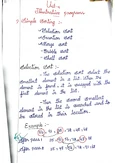 Unit - 4
Illustrative programs
Simple sorting :
Selection sort
Insertion sort
Merge sort
Bubble sort
Shell sort
Selection sort :
The selection sort select the
smallest element in a list when the
element is found, it is swapped with the
first element in the list.
Then the second smallest
element in the list is searched and to
be stored in their location.
Example :-
After pass 1
After pass 2